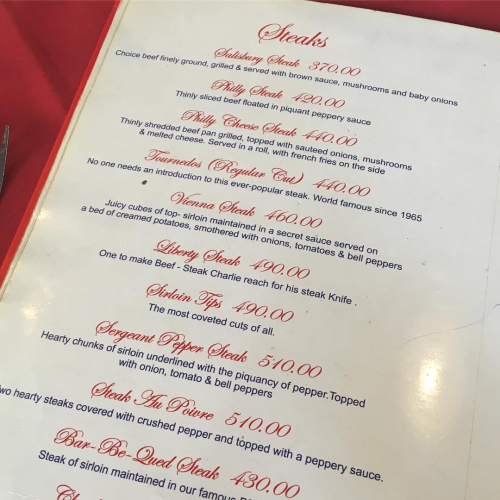 Steaks
Salisbury Steak 370.00
Choice beef finely ground, grilled & served with brown sauce, mushrooms and baby onions
Philly Steak 420.00
Thinly sliced beef floated in piquant peppery sauce
Philly Cheese Steak 440.00
Thinly shredded beef pan grilled, topped with sauteed onions, mushrooms
& melted cheese. Served in a roll, with french fries on the side
Tournedos (Regular Cut) 440.00
No one needs an introduction to this ever-popular steak. World famous since 1965
Vienna Steak 460.00
Juicy cubes of top- sirloin maintained in a secret sauce served on
a bed of creamed potatoes, smothered with onions, tomatoes & bell peppers
Liberty Steak 490.00
One to make Beef - Steak Charlie reach for his steak Knife .
Sirloin Tips 490.00
The most coveted cuts of all.
Sergeant Pepper Steak 510.00
Hearty chunks of sirloin underlined with the piquancy of pepper.Topped
with onion, tomato & bell peppers
Steak Au Poivre 510.00
Two hearty steaks covered with crushed pepper and topped with a peppery sauce.
Bar-Be-Qued Steak 430.00
Steak of sirloin maintained in our famous